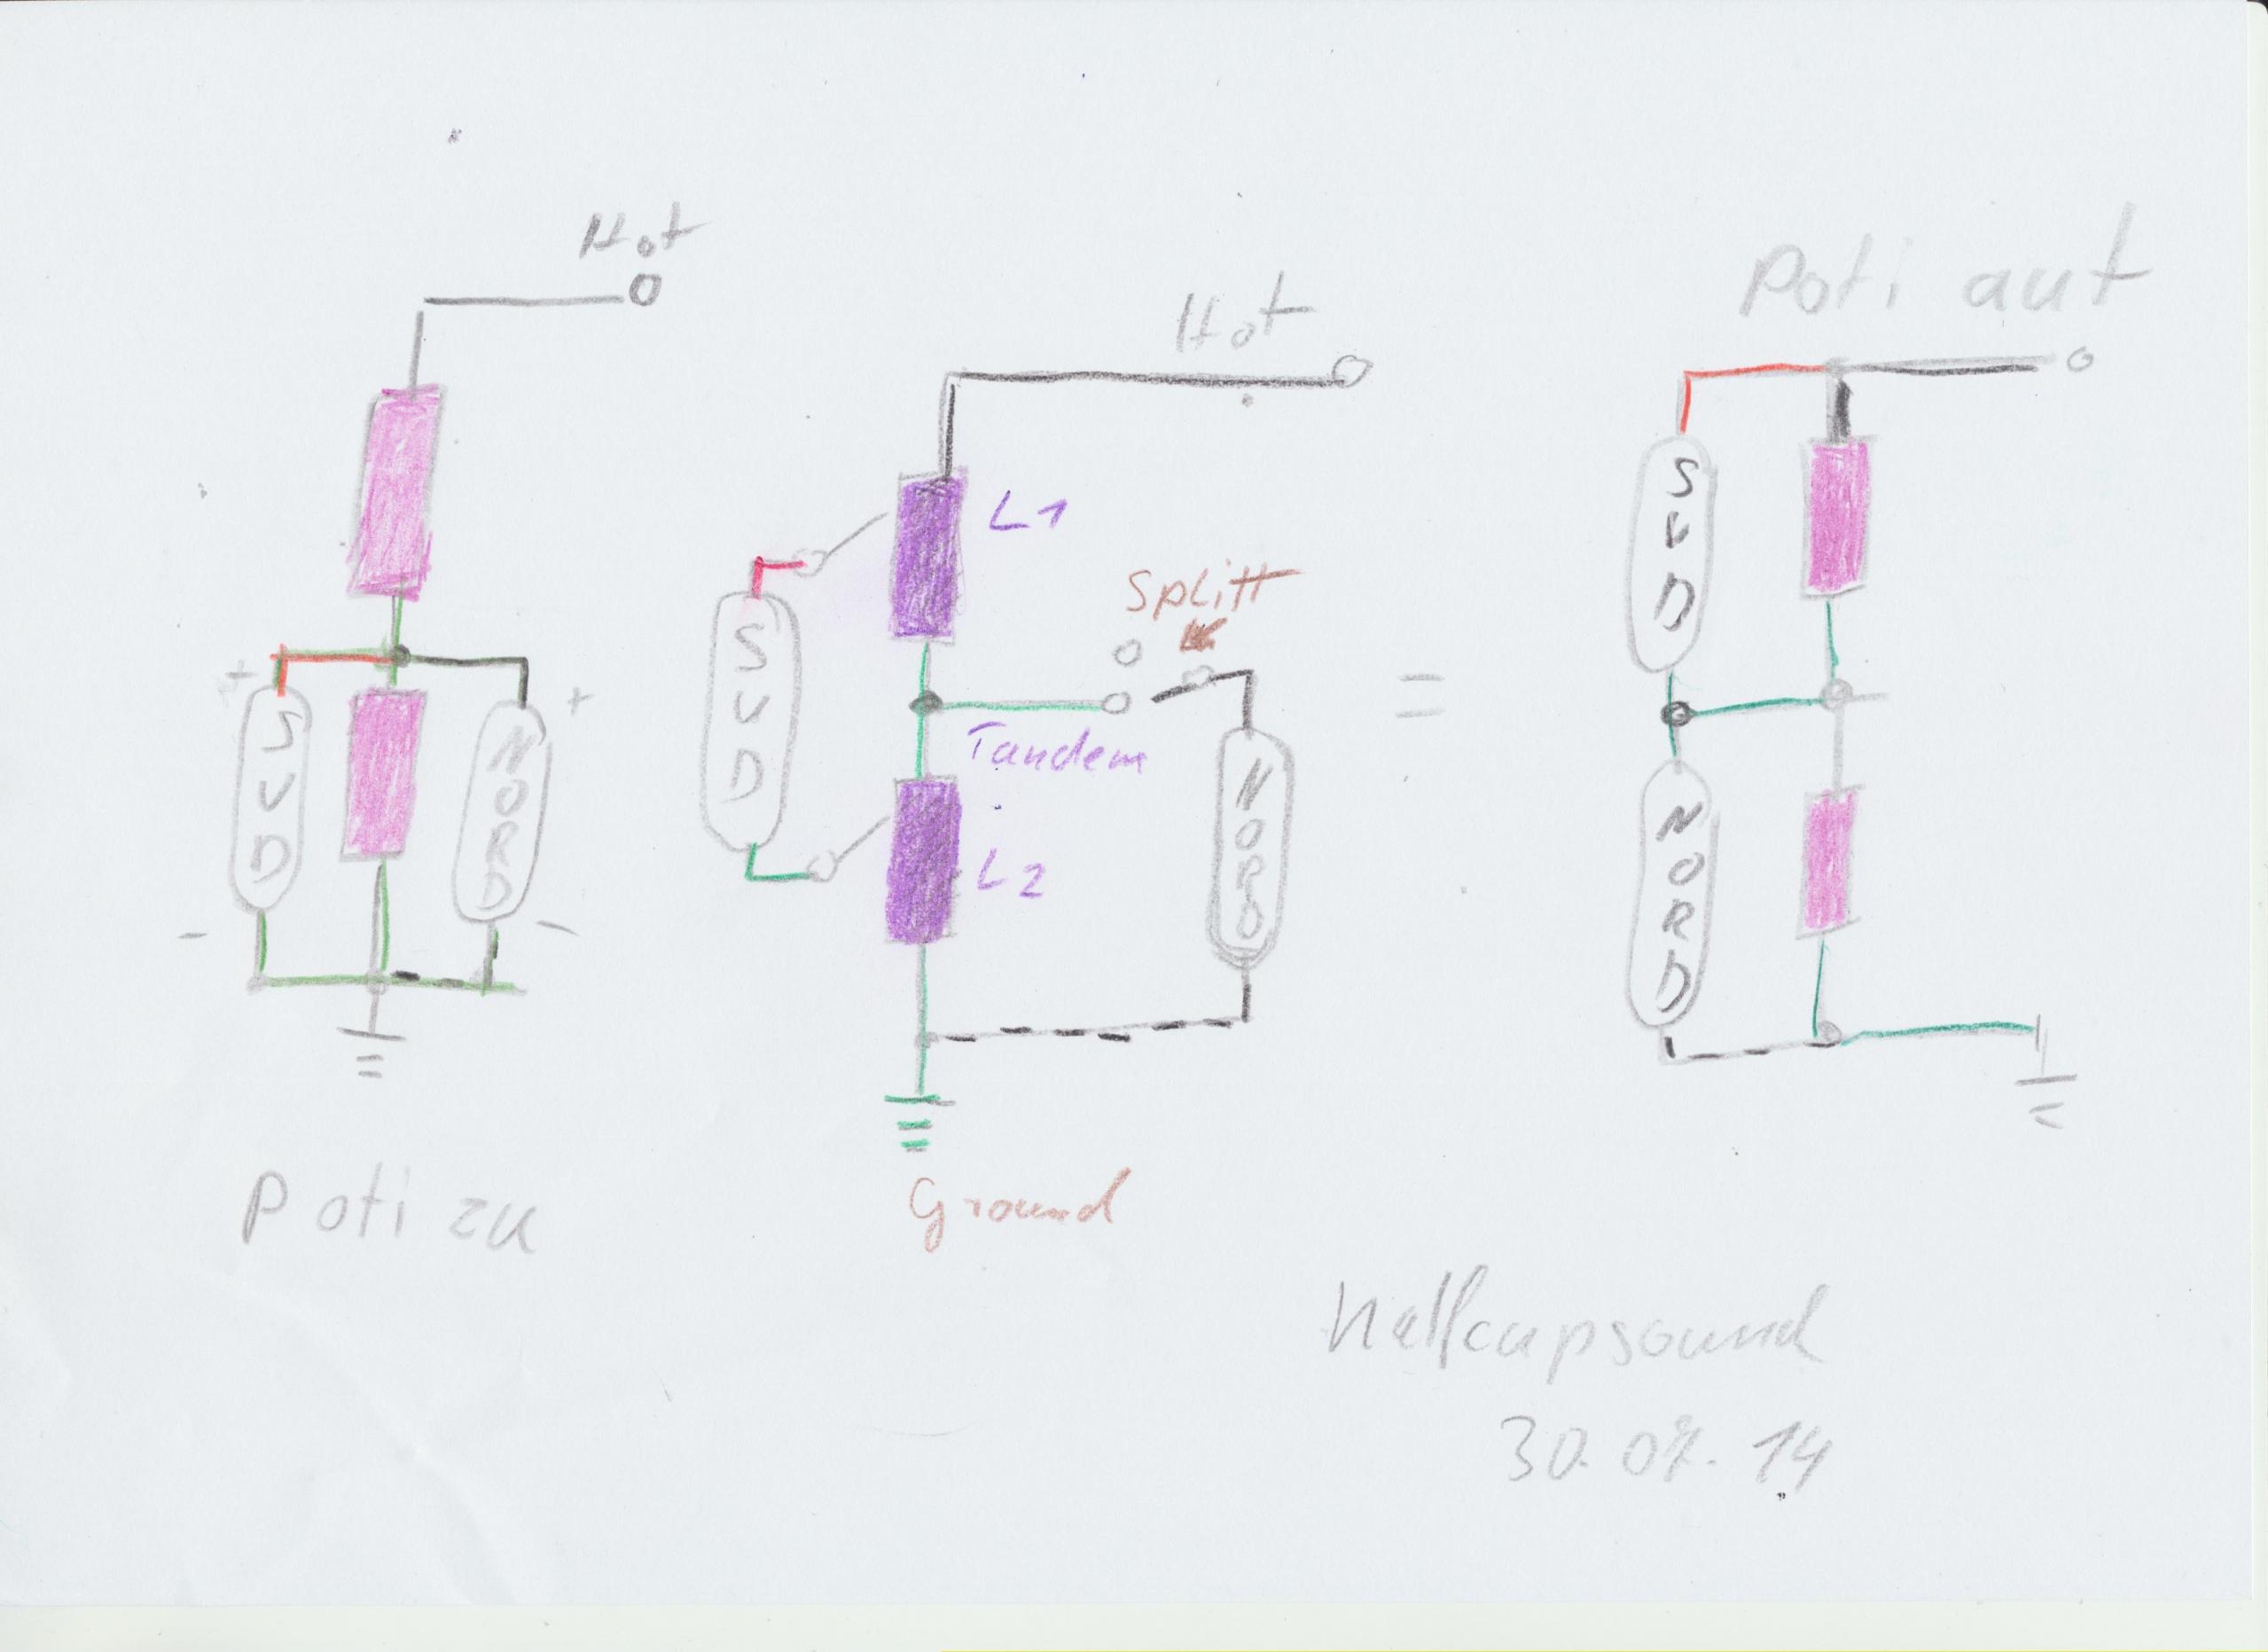 Hot
+
+
SUD
NORD
-
-
Poti zu
Hot
L1
Splitt
SUD
Tandem
NORD
L2
Ground
=
Poti auf
SUD
NORD
30.07.14